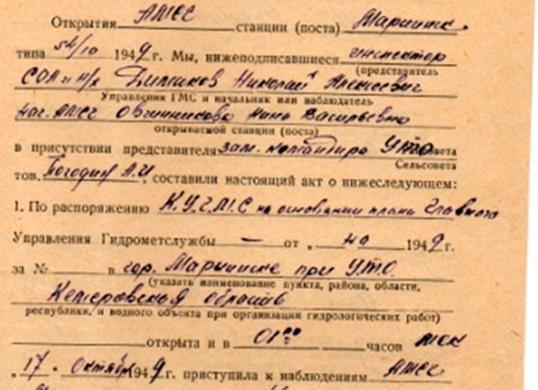 Открытия АМСГ станции (поста) Мариинск
типа 1949г. Мы, нижеподписавшиеся инспектор
(представитель
Николай Алексеевич
Управления ГМС и начальник или наблюдатель
нач. АМСГ Овчинникова Нина Васильевна
открываемой станции (поста)
в присутствии представителя зам. командира УТО
Сельсовета
тов. Погодин А.И, составили настоящий акт о нижеследующем:
1. По распоряжению К.У.Г.М.С на основании плана Главного
Управления Гидрометслужбы — от „ 1949г.
за № в гор. Мариинске при УТО
(указать наименование пункта, района, области,
Кемеровской области
республики, и водного объекта при организации гидрологических работ)
открыта и в 01 00 часов мск
„17" октября 1949 приступила к наблюдениям АМСГ